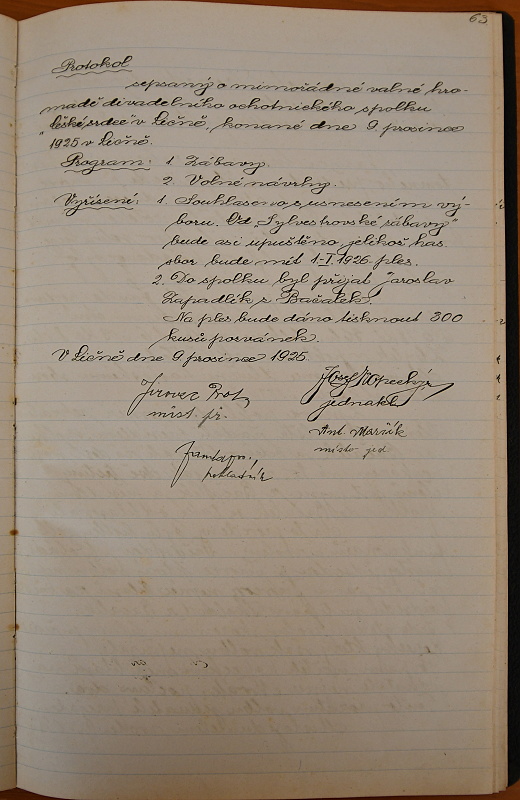 63
Protokol
sepsaný o mimořádné valné hro-
madě divadelního ochotnického spolku
"České srdce" v Lečně, konané dne 9 prosince
1925 v Lečně.
Program: 1. Zábavy.
2. Volné návrhy.
Vyřízení: 1. Souhlaseno s usnesením vý-
boru. Od "Sylvestrovské zábavy"
bude asi upuštěno, jelikož has.
sbor bude mít 1-I. 1926 ples.
2. Do spolku byl přijat Jaroslav
Zapadlík z Bařalek.
Na ples bude dáno tisknout 300
kusů pozvánek.
V Lečně dne 9 prosince 1925
Josef Kopecký
míst. př.
jednatel
Ant. Marzík
místo jed
pokladník